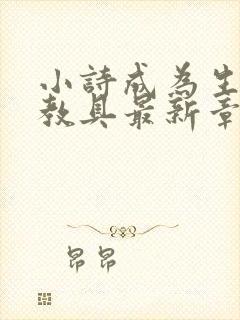 小詩成為生
教具最新章
昂昂